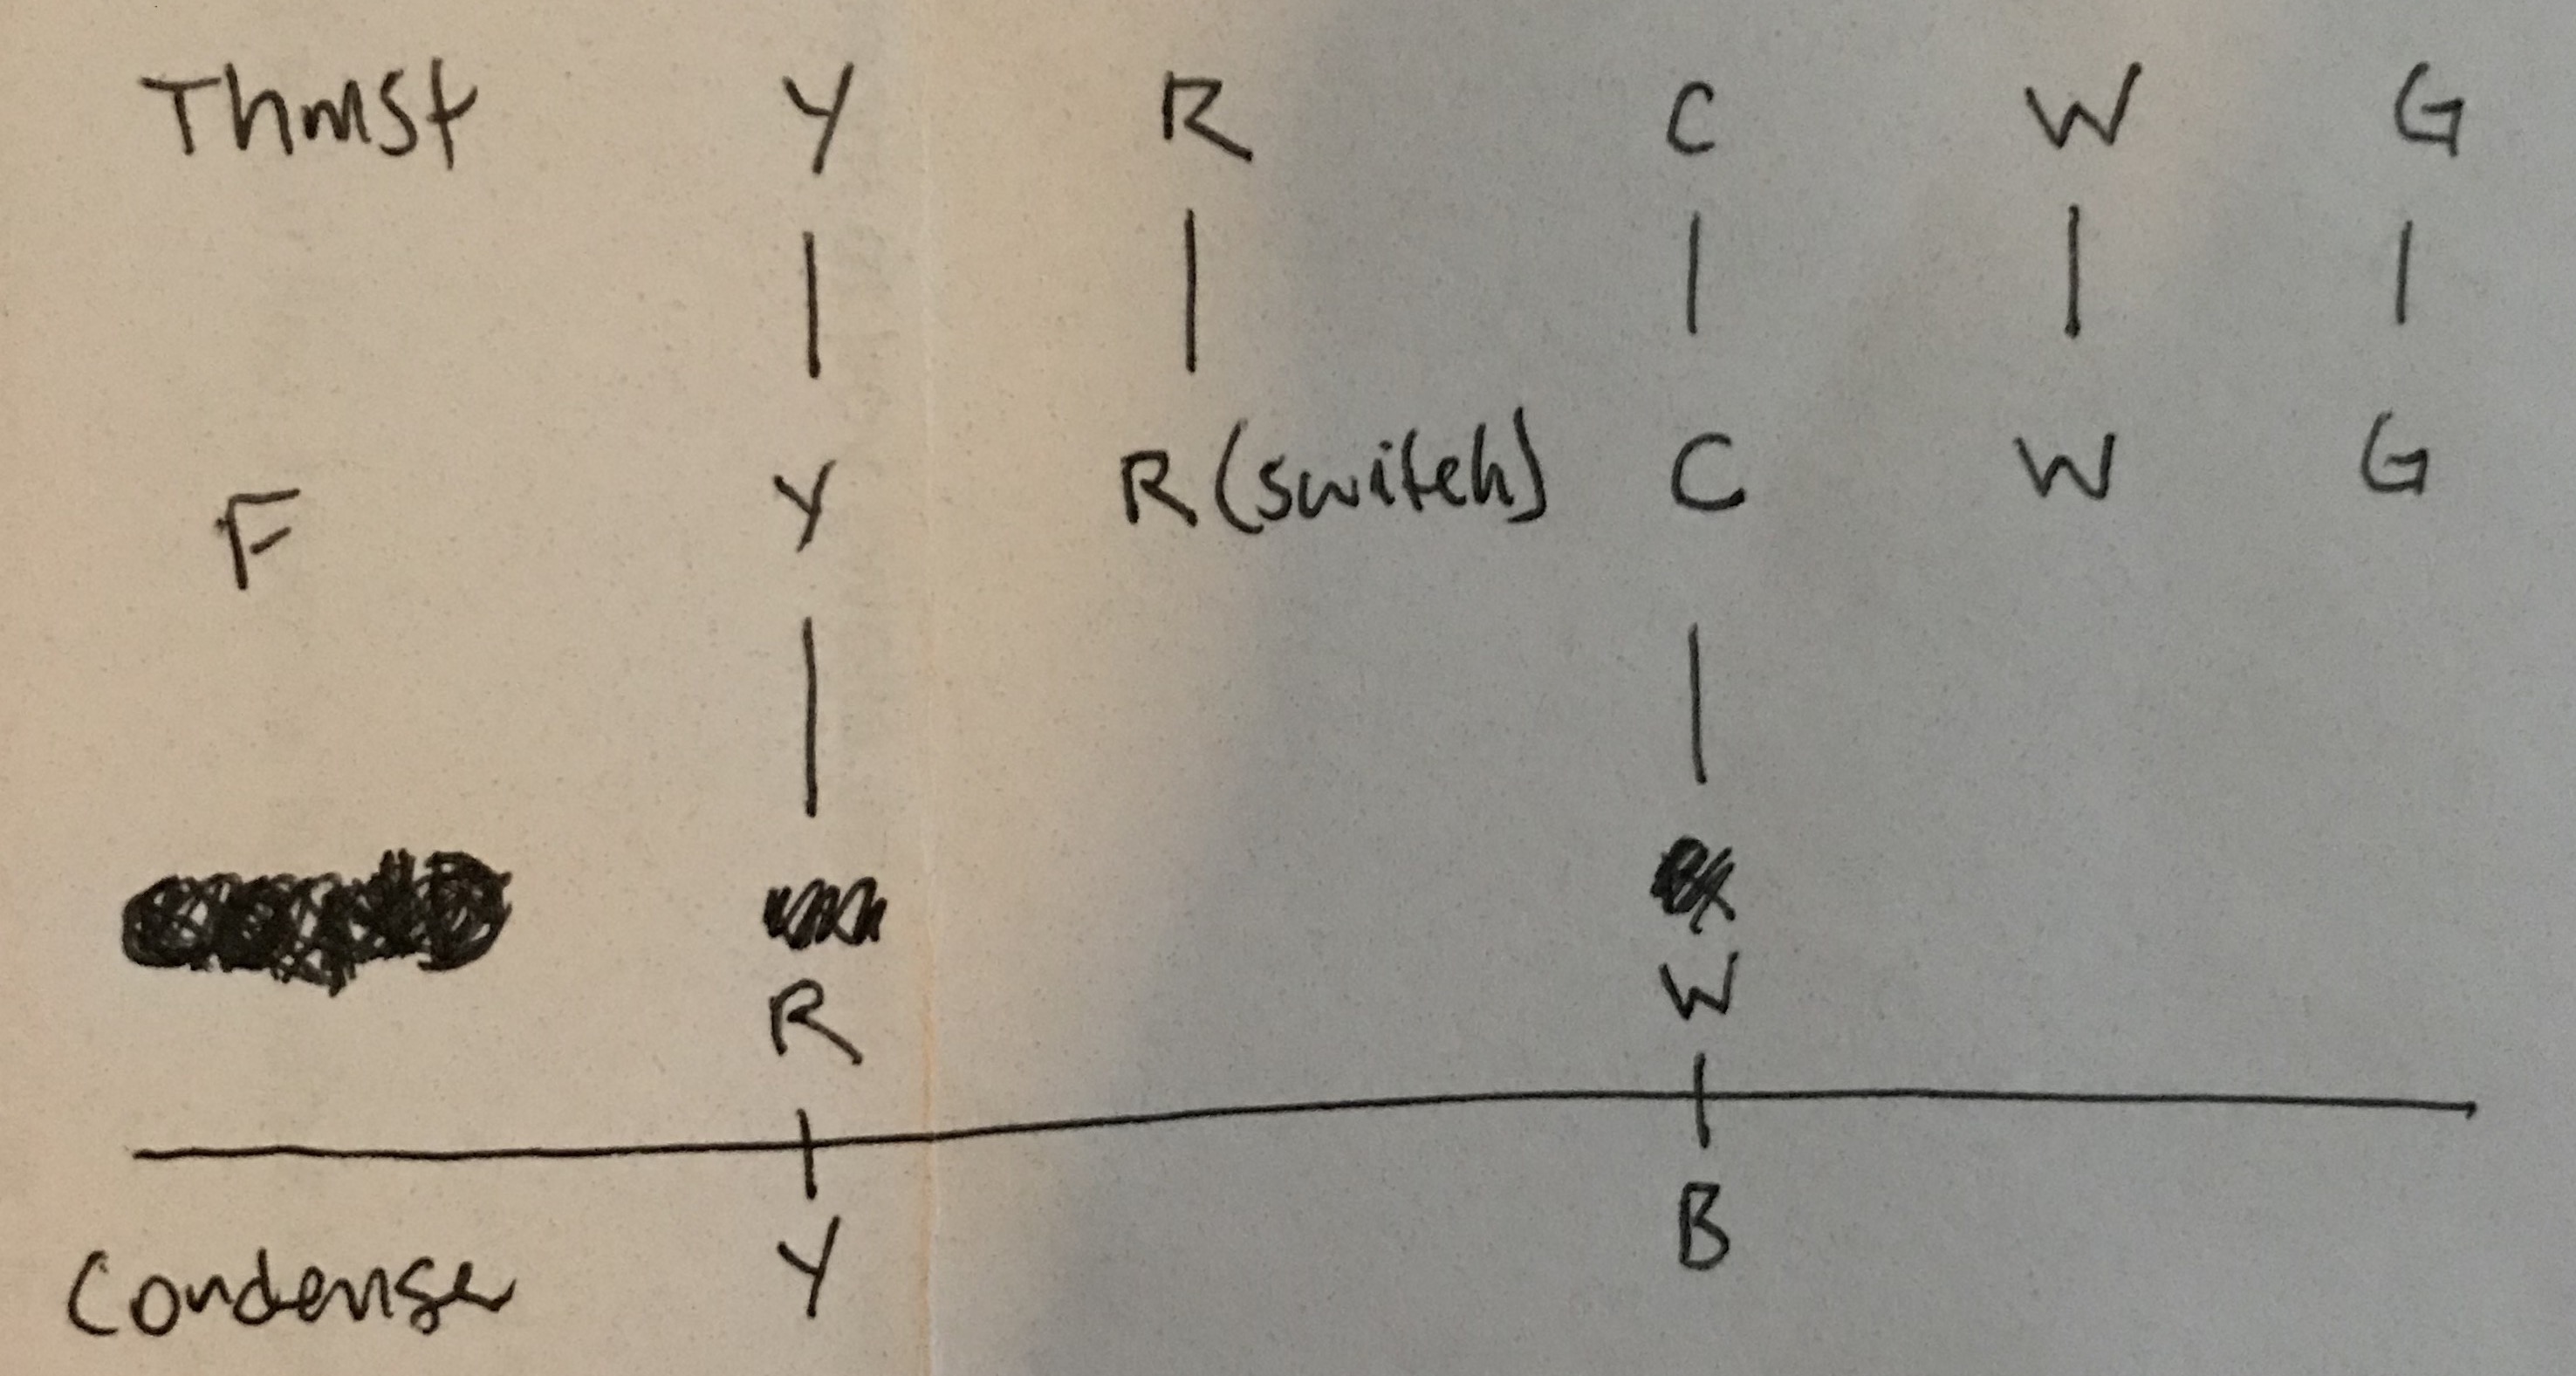 Thmst Y R C W G
F Y R (switch) C W G
R W
Condenser Y B